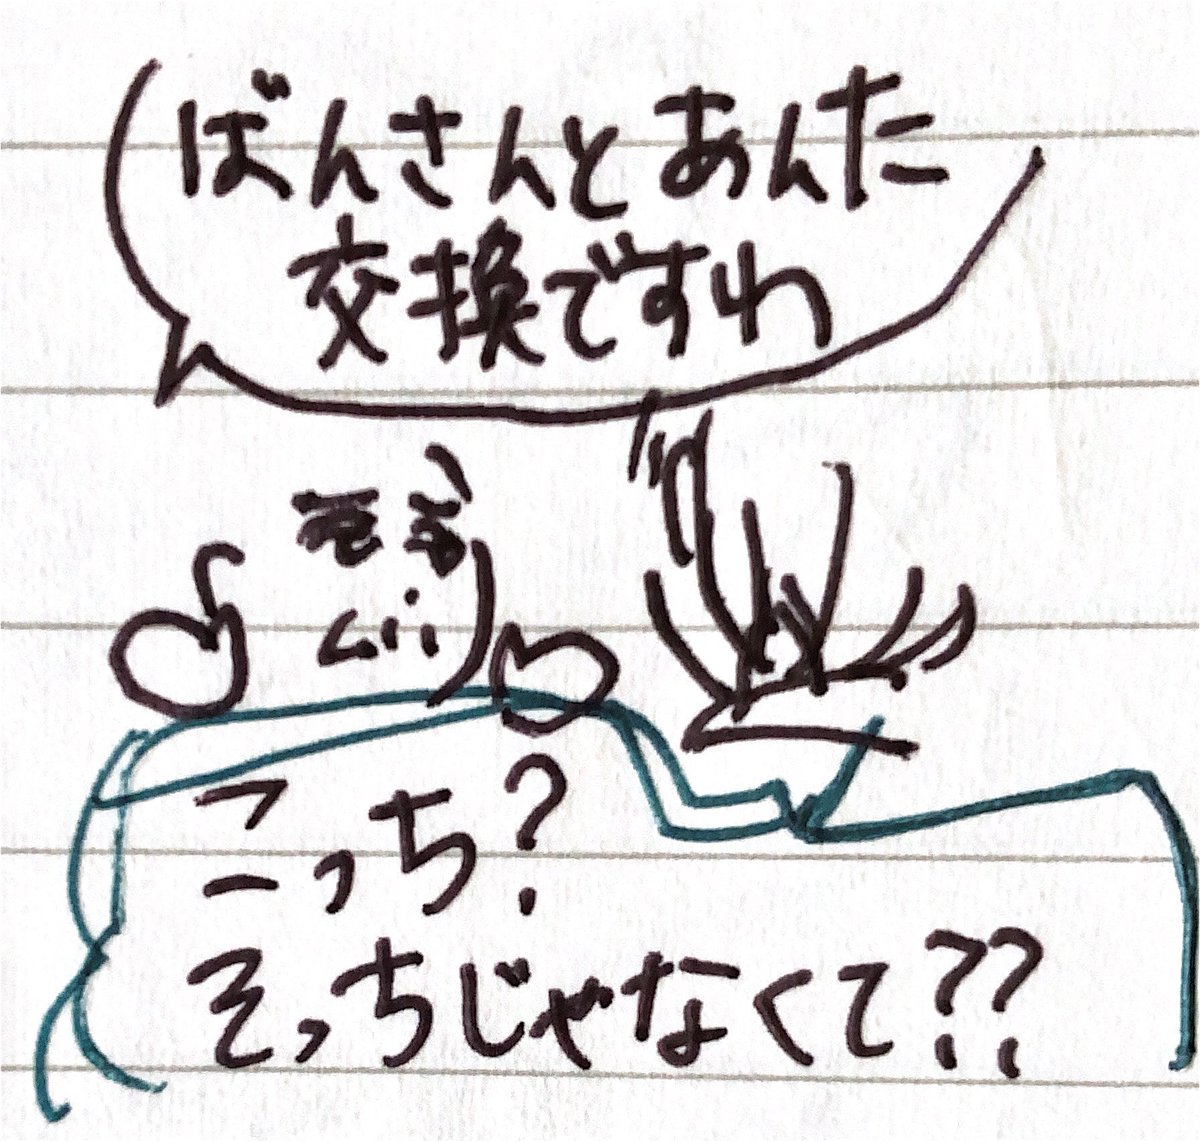 ばんさんとあんた
交換ですわ
こっち?
そっちじゃなくて??